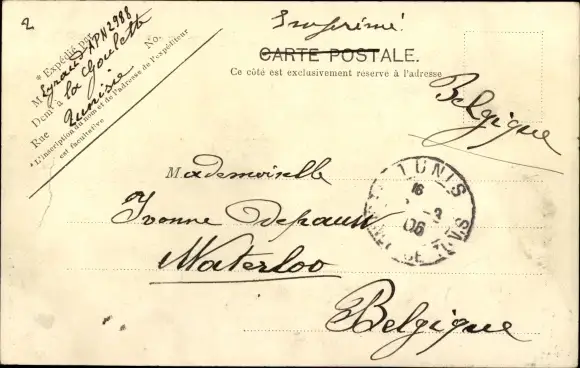 2
* Expédié par
M Eyraud APN 2988
Demt à la Goulette
Rue Tunisie No.
* L'inscription du nom et de l'adresse de l'expéditeur
est facultative
Imprimé.
CARTE POSTALE.
Ce côté est exclusivement reservé à l'adresse
Belgique
Mademoiselle
Yvonne Depauw
Waterloo
Belgique
TUNIS
16
-3
06